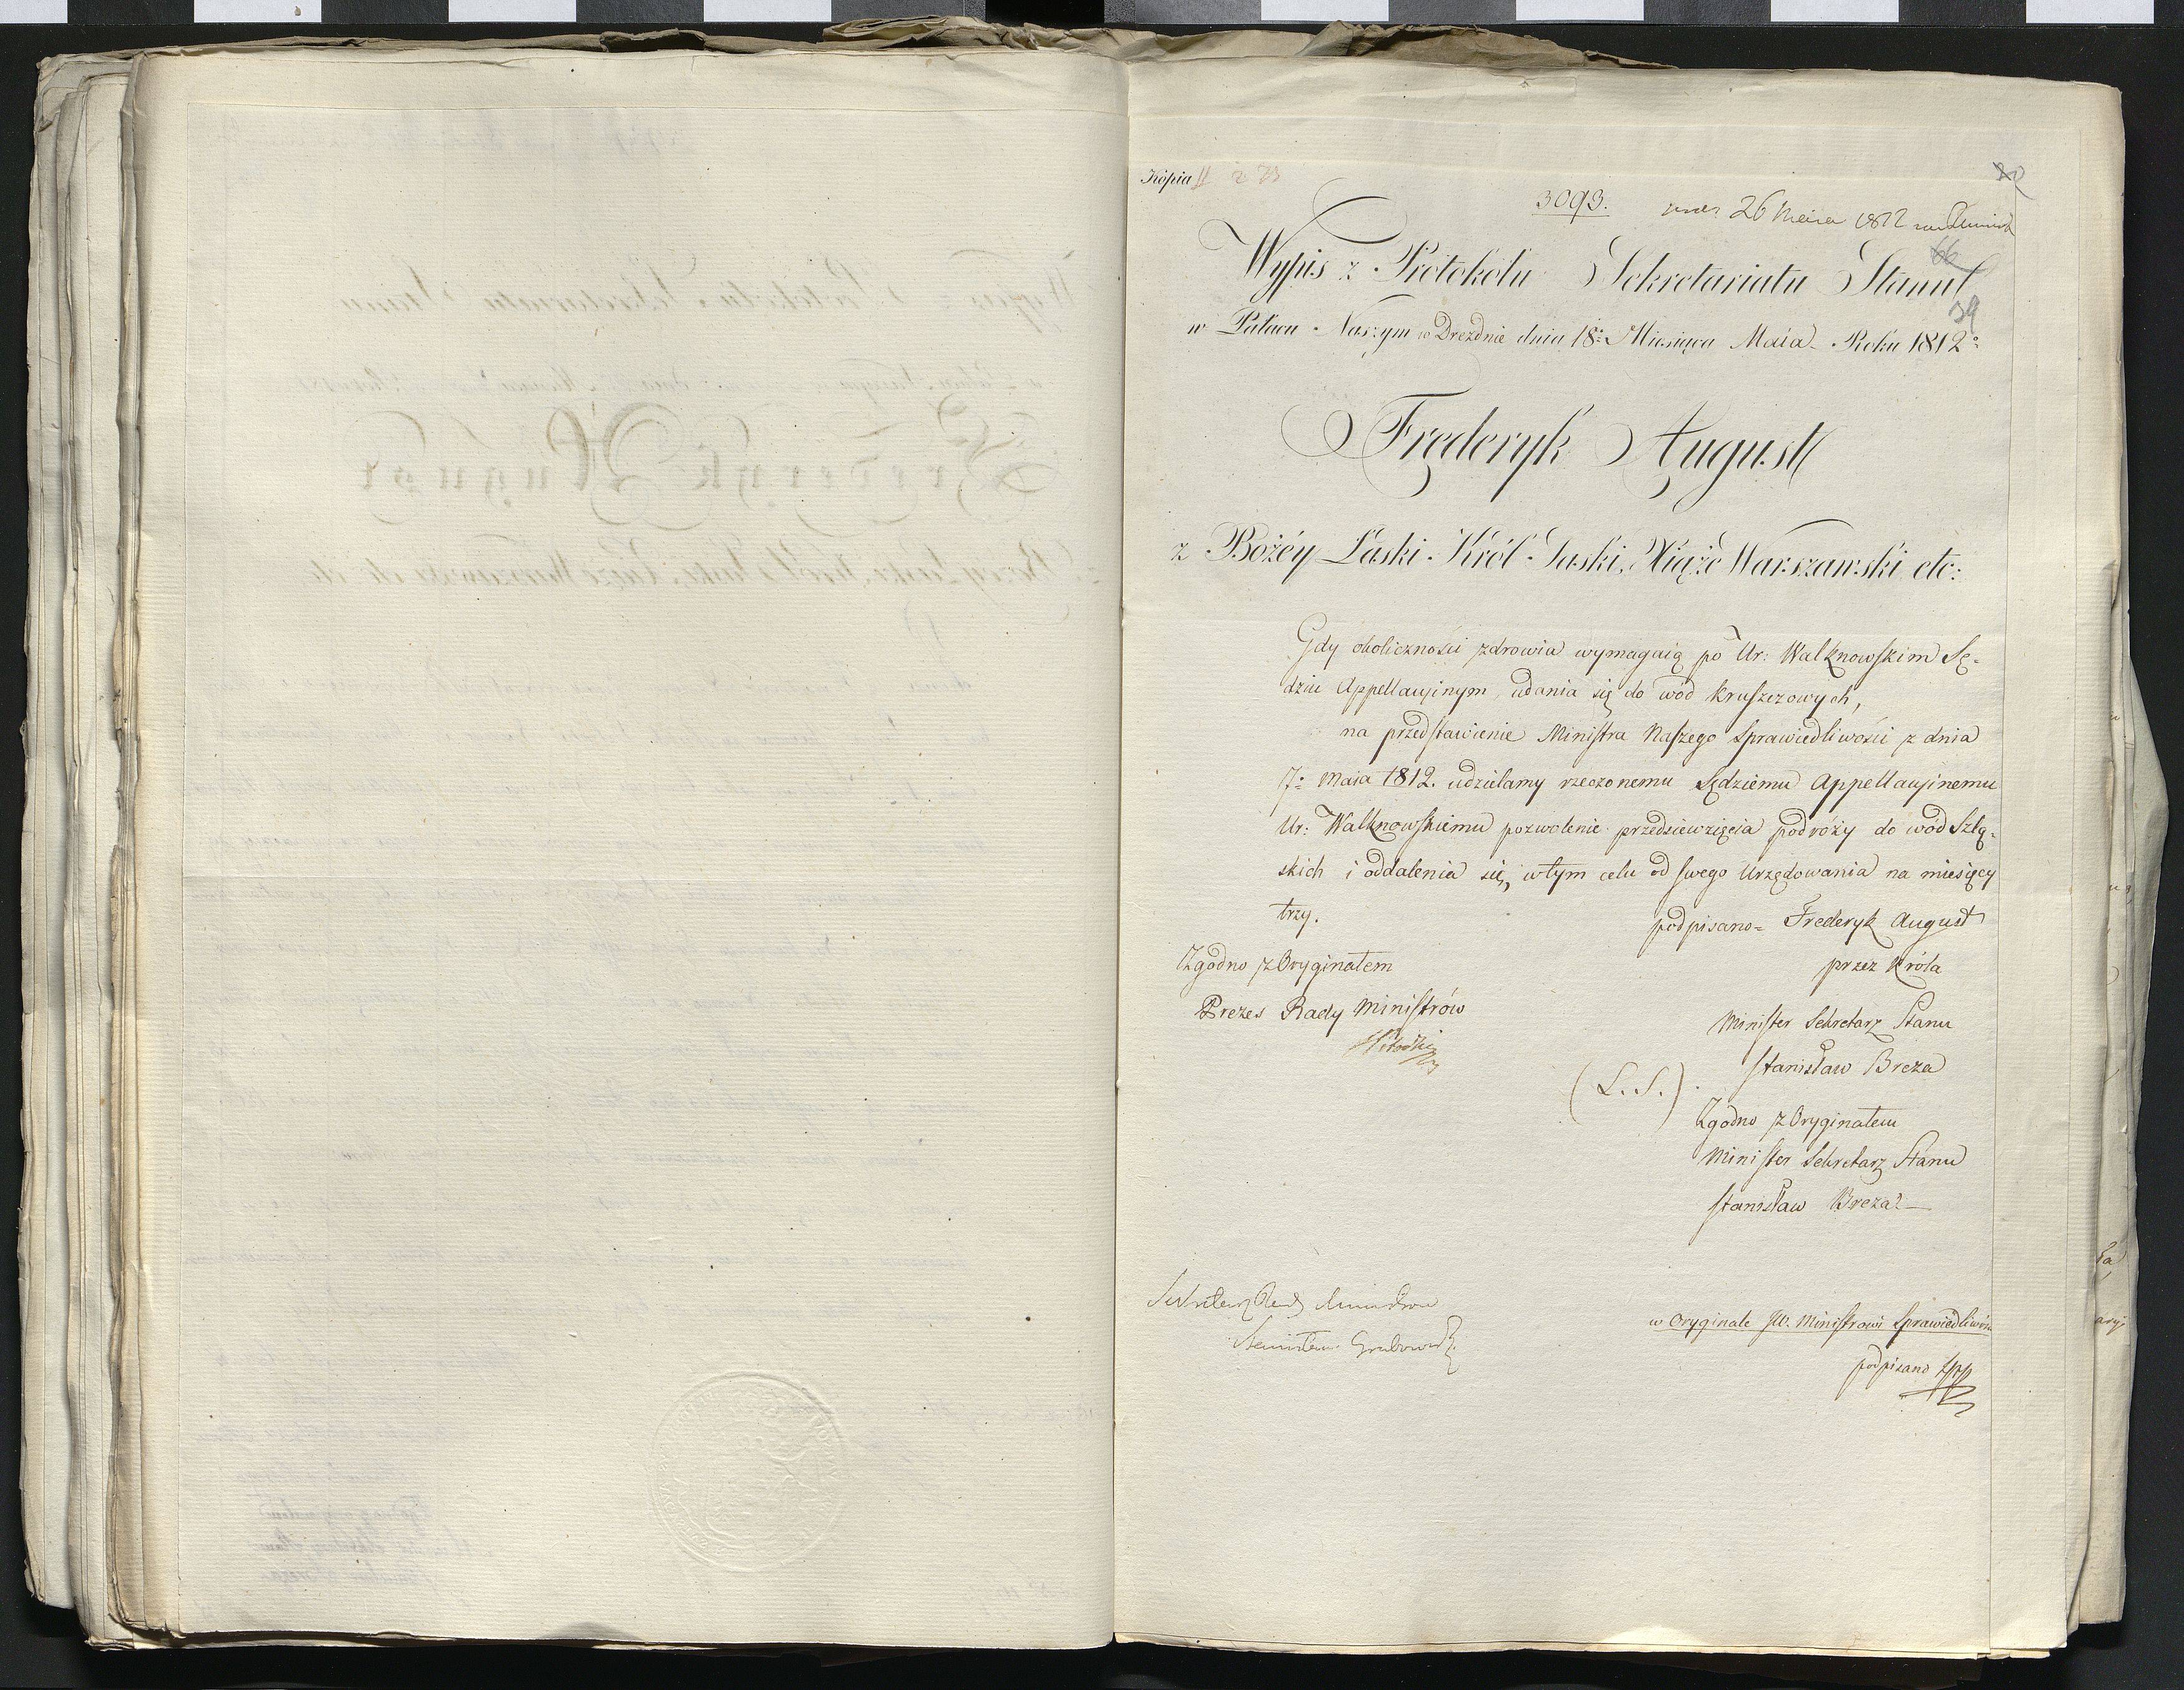 Kópia
3093.
26 Maia 1812
66
39
Wypis z Protokółu Sekretariatu Stanu
w Pałacu Naszym w Dreźdnie dnia 18: Miesiąca Maia Roku 1812:
Fryderyk August
z Bożéy Łaski Król Saski, Xiąże Warszawski etc:
Gdy okoliczności zdrowia wymagaią po Ur: Walknowskim Sę-
dziu Appellacyinym udania się do wód kruszczowych,
na przedstawienie Ministra Naszego Sprawiedliwości z dnia
7: maia 1812. udzielamy rzeczonemu Sędziemu Appellacyinemu
Ur: Walknowskiemu pozwolenie przedsiewzięcia podróży do wód Szlą-
skich i oddalenia się, w tym celu od swego Urzędowania na miesięcy
trzy.
podpisano= Frederyk August
przez Króla
Minister Sekretarz Stanu
Stanisław Breza
(L.S.)
Zgodno z Oryginałem
Minister Sekretarz Stanu
Stanisław Breza
Zgodno z Oryginałem
Prezes Rady Ministrów
Sekretarz Rady Ministrów
Stanisław Grabowski
w Oryginale JW. Ministrowi Sprawiedliwości
podpisano